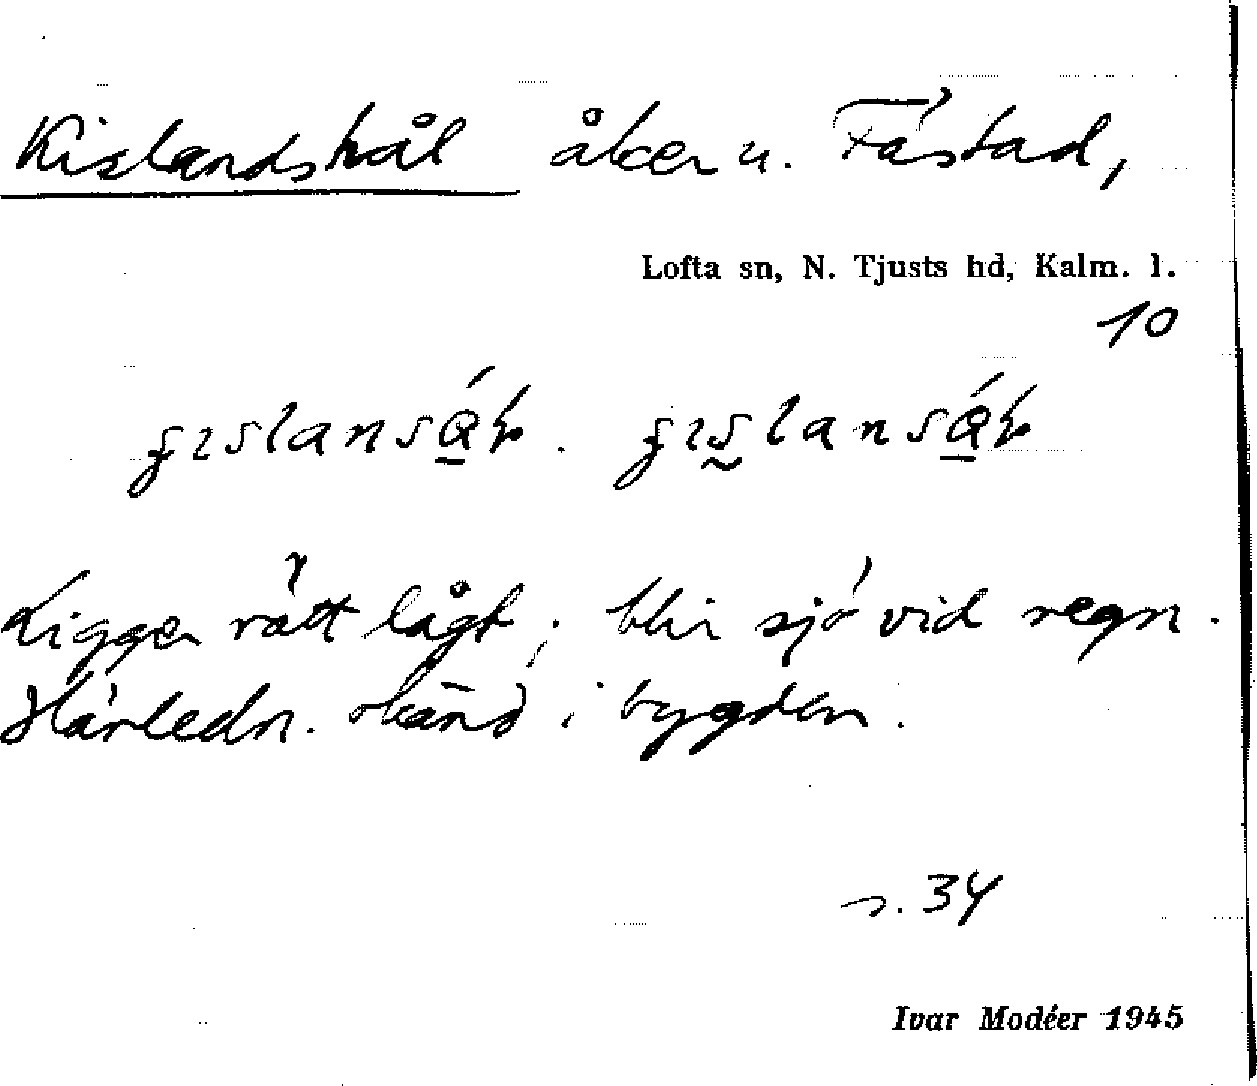 Kislandshål åker u. Fästad,
Lofta sn, N. Tjusts hd, Kalm. l.
10
Ligger rätt lågt; blir sjö vid regn.
Härledn. okänd i bygden.
s. 34
Ivar Modéer 1945